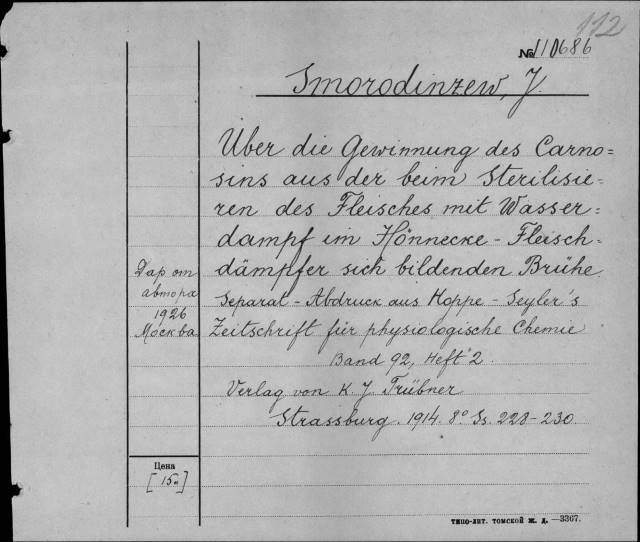 112
№ 110686
Smorodinzew, J.
Über die Gewinnung des Carno=
sins aus der beim Sterilisie=
ren des Fleisches mit Wasser=
dampf im Hönnecke-Fleisch=
dämpfer sich bildenden Brühe.
Separat-Abdruck aus Hoppe-Seyler's
Zeitschrift für physiologische Chemie
Band 92, Heft 2.
Verlag von K. J. Trübner
Strassburg. 1914. 8° Ss. 228-230
Дар от
автора
1926
Москва
Цена
[15к]
ТИПО-ЛИТ. ТОМСКОЙ Ж. Д. —3367.